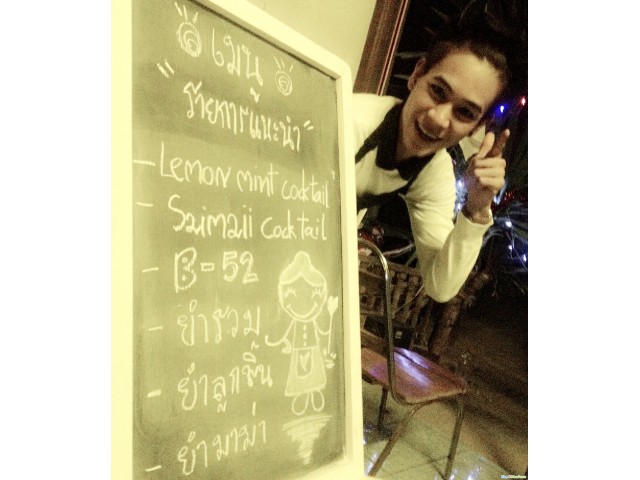 เมนู
"รายการแนะนำ"
- Lemon mint cocktail
- Saimaii cocktail
- B-52
- ยำรวม
- ยำลูกชิ้น
- ยำมาม่า